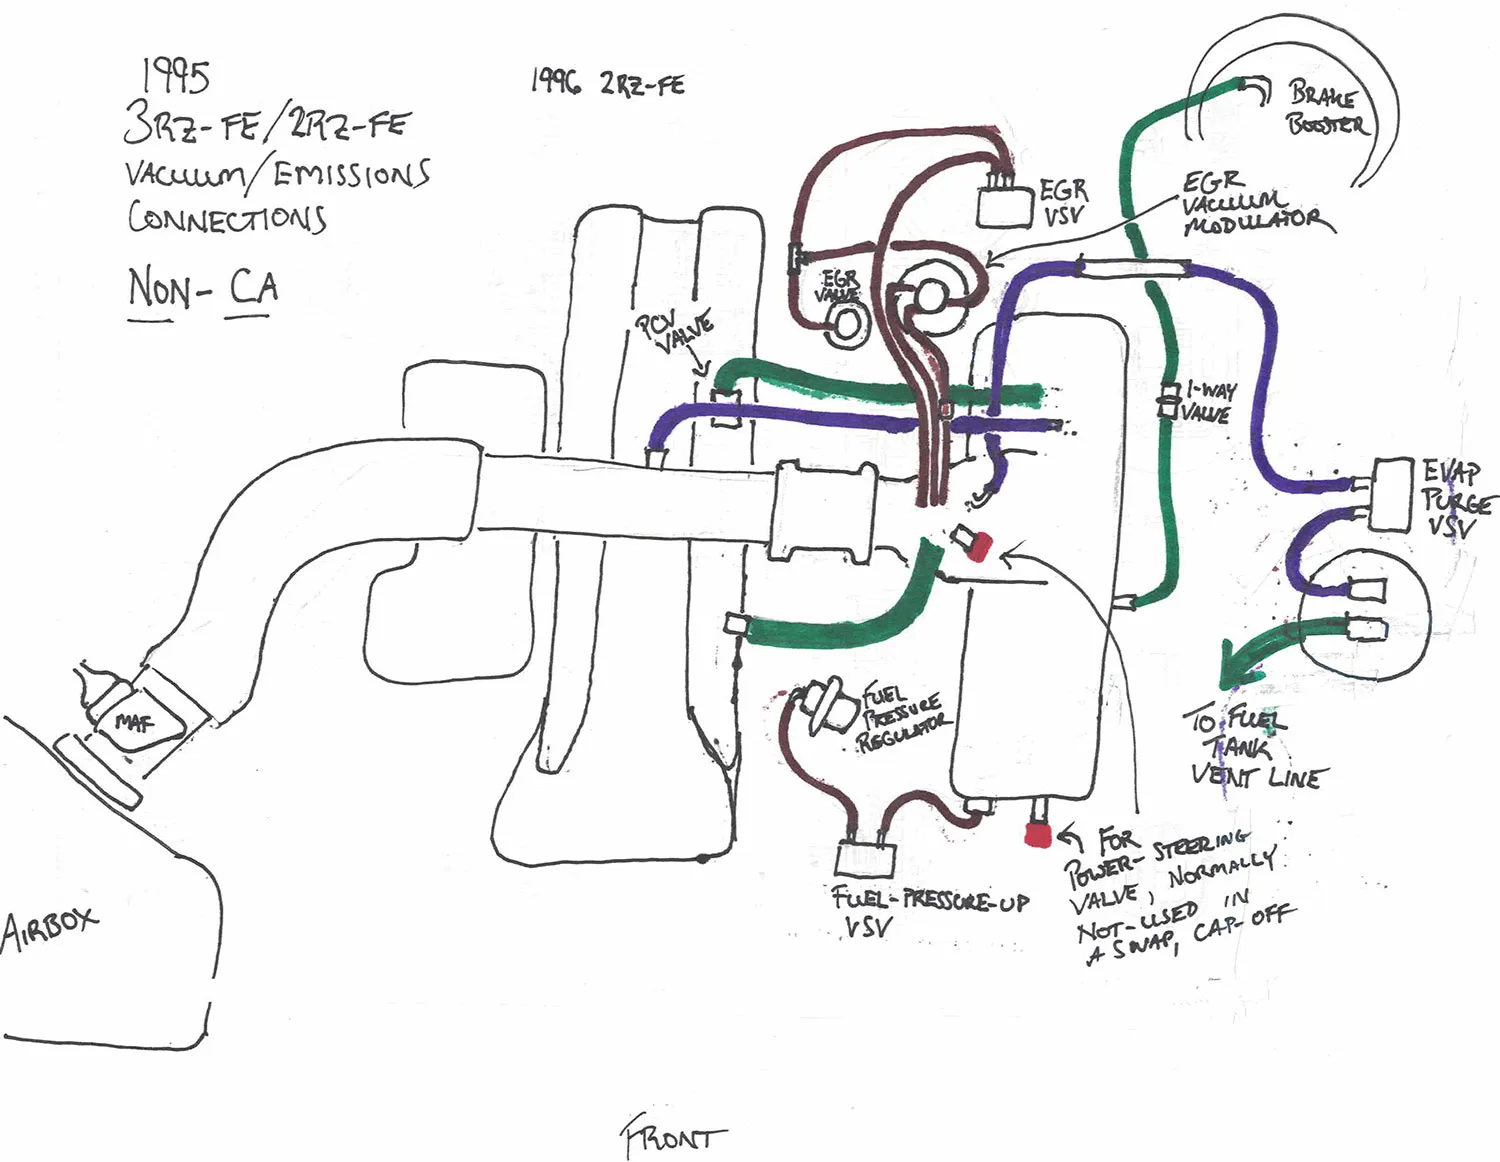 1995
3RZ-FE/2RZ-FE
VACUUM/EMISSIONS
CONNECTIONS
NON- CA
1996 2RZ-FE
BRAKE
BOOSTER
EGR
VSV
EGR
VACUUM
MODULATOR
EGR
VALVE
PCV
VALVE
1-WAY
VALVE
EVAP
PURGE
VSV
MAF
FUEL
PRESSURE
REGULATOR
TO FUEL
TANK
VENT LINE
FOR
POWER-STEERING
VALVE, NORMALLY
NOT-USED IN
A SWAP, CAP-OFF
FUEL-PRESSURE-UP
VSV
AIRBOX
FRONT